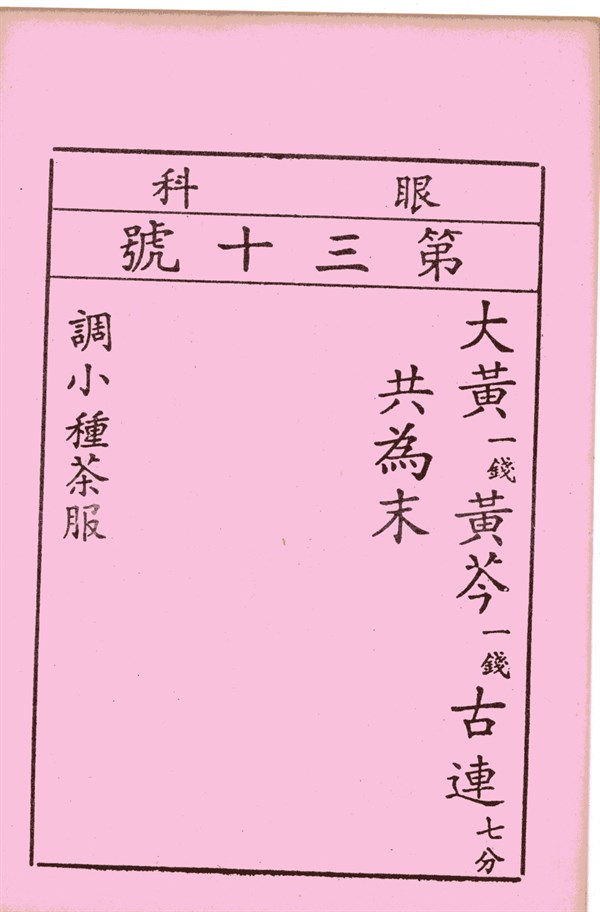 眼科
第三十號
大黃一錢黃芩一錢古連七分
共為末
調小種茶服